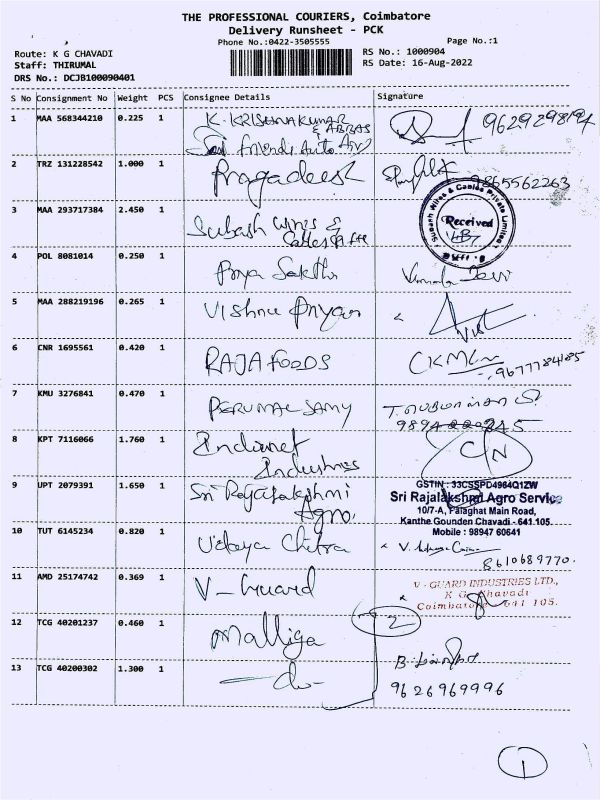 THE PROFESSIONAL COURIERS, Coimbatore
Delivery Runsheet - PCK
Phone No.:0422-3505555
Page No.:1
Route: K G CHAVADI
Staff: THIRUMAL
DRS No.: DCJB100090401
RS No.: 1000904
RS Date: 16-Aug-2022
S No Consignment No Weight PCS Consignee Details Signature
1 MAA 568344210 0.225 1 K. KRISHNAKUMAR & ABBAS
Friends Auto
2 TRZ 131228542 1.000 1 Pragadeesh 9865562263
3 MAA 293717384 2.450 1 Subash Wires &
Cables
Subash Wires & Cables Private Limited
Received
4 POL 8081014 0.250 1 Priya Sakthi
5 MAA 288219196 0.265 1 Vishnu Priyan
6 CNR 1695561 0.420 1 RAJA FOODS
9677784185
7 KMU 3276841 0.470 1 PERUMAL SAMY
8 KPT 7116066 1.760 1 Indianet
Industries
9 UPT 2079391 1.650 1 Sri Rajalakshmi
Agro.
GSTIN : 33CSSPD4964Q1ZW
Sri Rajalakshmi Agro Service
10/7-A, Palaghat Main Road,
Kanthe Gounden Chavadi - 641 105.
Mobile : 98947 60641
10 TUT 6145234 0.820 1 Udaya Chitra
8610689770.
11 AMD 25174742 0.369 1 V-Guard
V - GUARD INDUSTRIES LTD.,
K G Chavadi
Coimbatore 641 105.
12 TCG 40201237 0.460 1 Malliga
2
13 TCG 40200302 1.300 1 -do-
9626969996
1